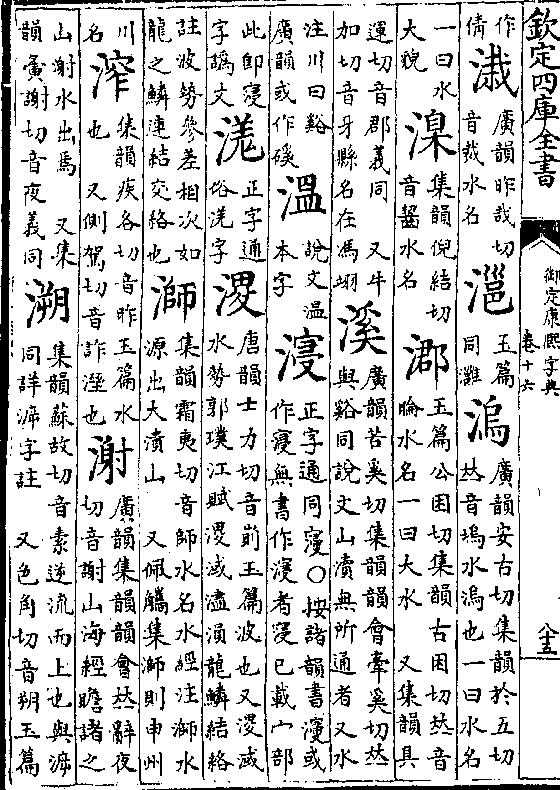 欽定四庫全書
御定康熙字典
卷十六
作倩 渽 廣韻昨哉切音裁水名 㴩 玉篇同灉 溩 廣韻安古切集韻於五切𠀤音塢水溩也一曰水名
一曰水大貌 集韻倪結切音齧水名 玉篇公困切集韻古困切𠀤音睔水名一曰大水 又集韻具
運切音郡義同 又牛加切音牙縣名在馮翊 溪 廣韻苦奚切集韻韻會牽奚切𠀤與谿同說文山瀆無所通者又水
注川曰谿廣韻或作磎 溫 說文温本字 㴆 正字通同寖〇按諸韻書濅或作寖無書作㴆者寖已載宀部
此卽寖字譌文 㳾 正字通俗洗字 溭 唐韻士力切音崱玉篇波也又溭淢水勢郭璞江賦溭淢濜溳龍鱗結絡
註波勢參差相次如龍之鱗連結交絡也 溮 集韻霜夷切音師水名水經注溮水源出大潰山 又佩觿集溮則申州
川名 集韻疾各切音昨玉篇水也 又側駕切音詐溼也 廣韻集韻韻會𠀤辭夜切音謝山海經瞻諸之
山 水出焉 又集韻夤謝切音夜義同 溯 集韻蘇故切音素逆流而上也與泝同詳泝字註 又色角切音朔玉篇